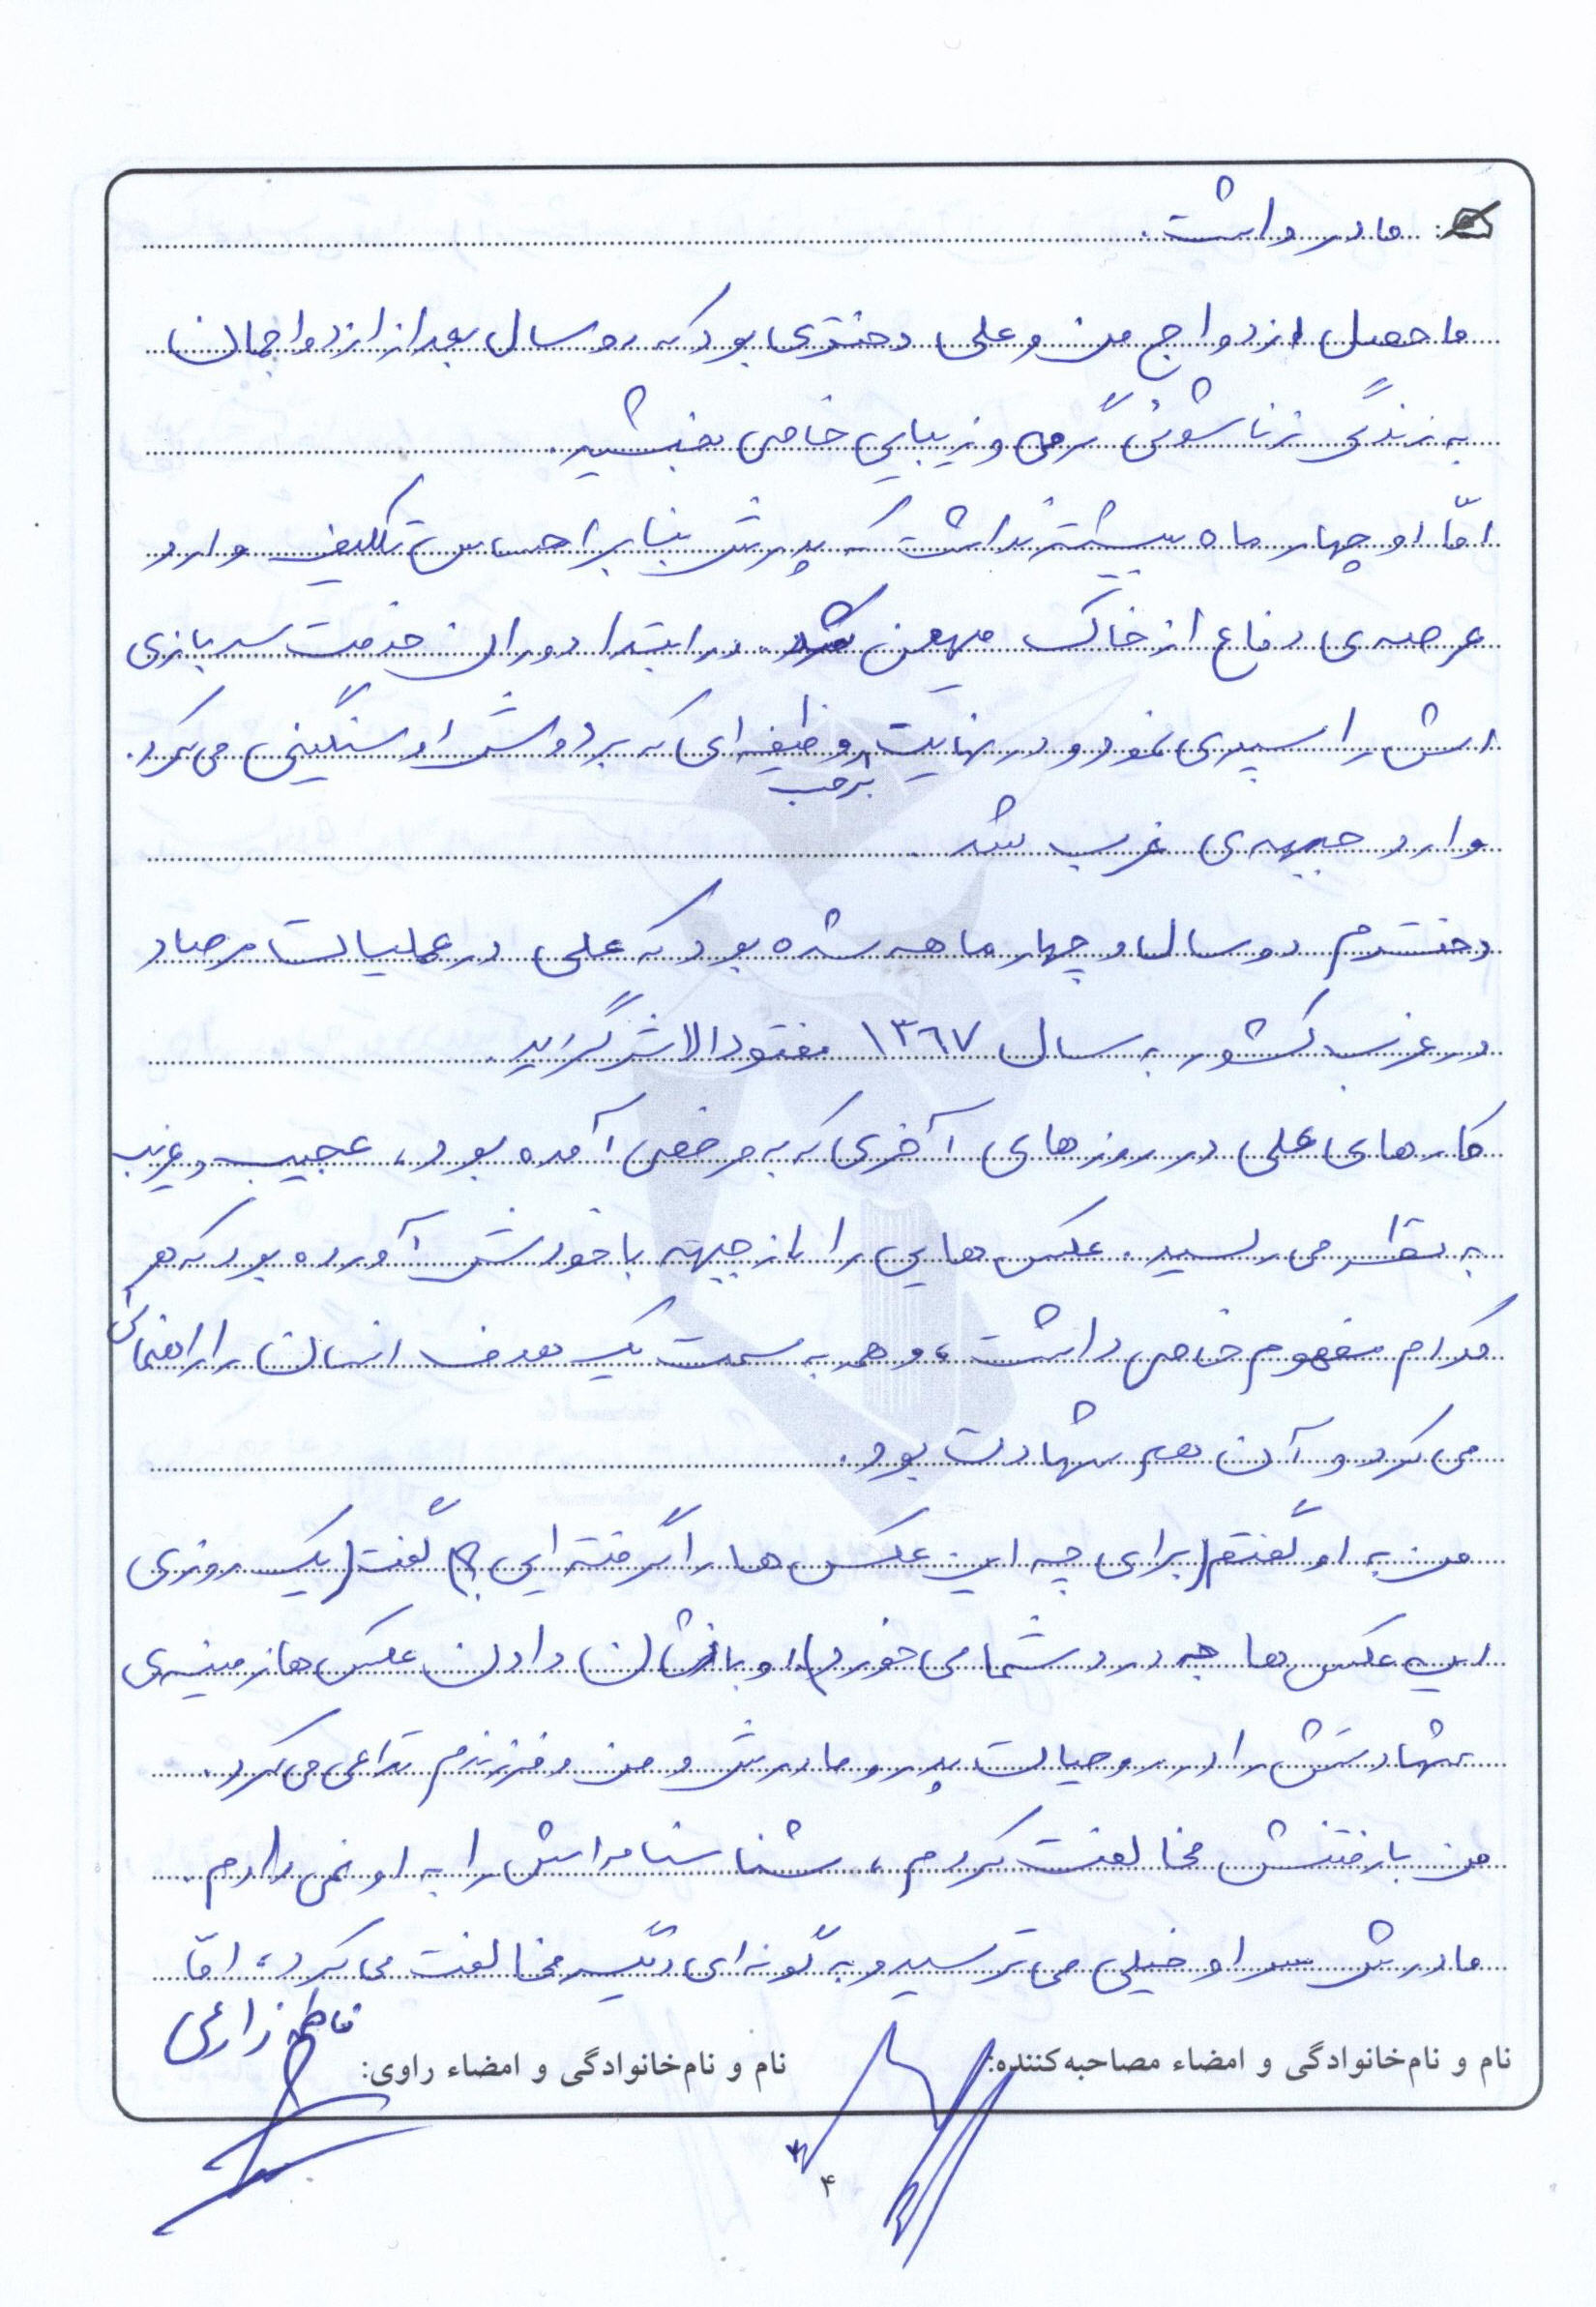 مادر داشت.
ماحصل ازدواج من و علی دختری بود که دو سال بعد از ازدواجمان
به زندگی زناشوئی گرمی و زیبایی خاصی بخشید.
امّا او چهار ماه بیشتر نداشت که پدرش بنا بر احساس تکلیف وارد
عرصه‌ی دفاع از خاک میهن شد. در ابتدا دوران خدمت سربازی
اش را سپری نمود و در نهایت برحسب وظیفه‌ای که بر دوش او سنگینی می‌کرد.
وارد جبهه‌ی غرب شد.
دخترم دو سال و چهار ماهه شده بود که علی در عملیات مرصاد
در غرب کشور به سال ۱۳۶۷ مفقودالاثر گردید.
کارهای علی در روزهای آخری که به مرخصی آمده بود، عجیب و غریب
به نظر می رسید. عکس هایی را از جبهه با خودش آورده بود که هر
کدام مفهوم خاصی داشت، و همه به سمت یک هدف انسان را راهنمائی
می کرد و آن هم شهادت بود.
من به او گفتم (برای چه این عکس ها را گرفته ایی؟) گفت (یک روزی
این عکس ها به درد شما می خورد) او با نشان دادن عکس ها زمینه‌ی
شهادتش را در روحیات پدر و مادرش و من و فرزندم تداعی می کرد.
من با رفتنش مخالفت کردم، شناسنامه اش را به او نمی دادم.
مادرش سر او خیلی می ترسید و به گونه ای دیگر مخالفت می کرد، امّا
نام و نام‌خانوادگی و امضاء مصاحبه‌کننده:
نام و نام‌خانوادگی و امضاء راوی: فاطمه زارعی
۴